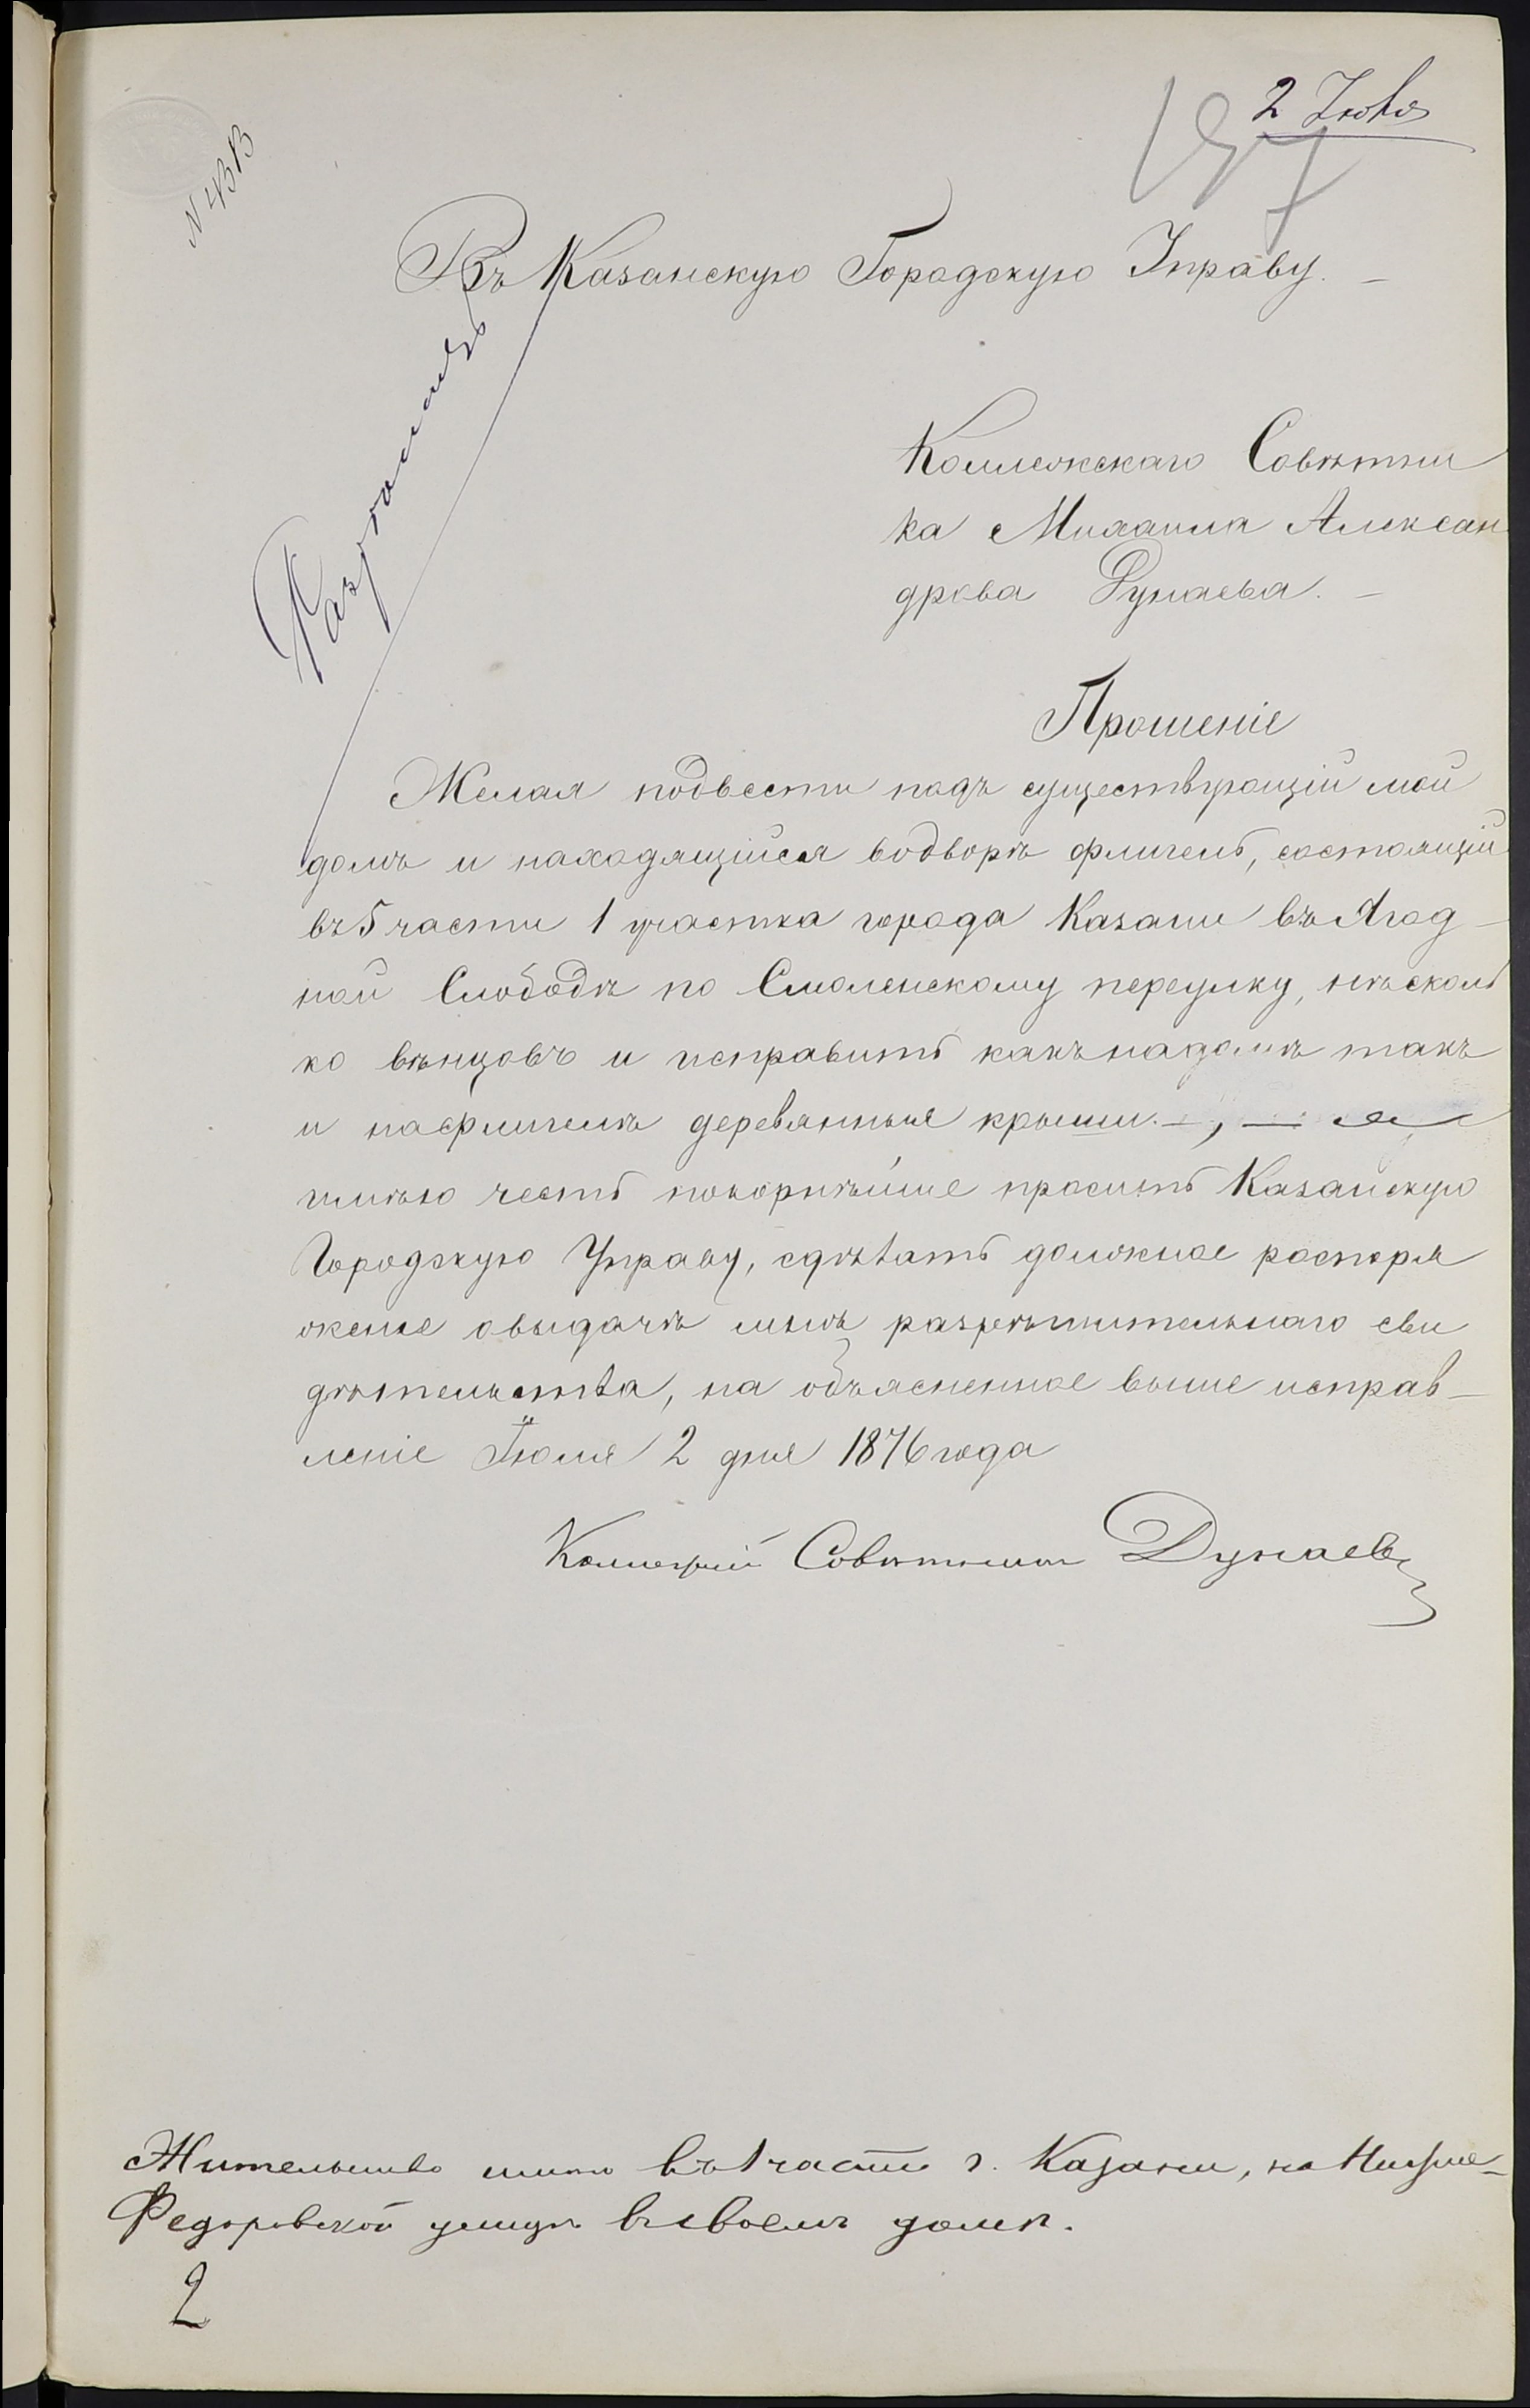 2 Іюля
197
N 4313
Въ Казанскую Городскую Управу. —
Разрешить
Коллежскаго Совѣтни
ка Михаила Алексан
дрова Дунаева. —
Прошеніе
Желая подвести подъ существующій мой
домъ и находящійся водворѣ флигель, состоящій
въ 5 части 1 участка города Казани въ Ягод—
ной Слободѣ по Смоленскому переулку, нѣсколь
ко вѣнцовъ и исправить какъ надомѣ такъ
и нафлигелѣ деревянныя крыши. —, — я
имѣю честь покорнѣйше просить Казанскую
Городскую Управу, сдѣлать должное распоря
женіе овыдачѣ мнѣ разрѣшительнаго сви
дѣтельства, на объясненное выше исправ—
леніе Іюля 2 дня 1876 года
Коллежскій Совѣтникъ Дунаевъ
Жительство имѣю въ 1 части г. Казани, на Нижне—
Федоровской улицѣ въ своемъ домѣ.
2